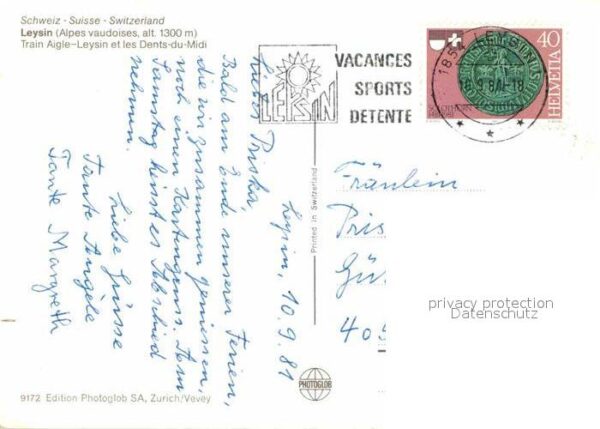 Schweiz · Suisse · Switzerland
Leysin (Alpes vaudoises, alt. 1300 m)
Train Aigle–Leysin et les Dents-du-Midi
LEYSIN
VACANCES
SPORTS
DETENTE
1854 LEYSIN
40
HELVETIA
Leysin, 10.9.81
Liebe Priska,
Bald am Ende unserer Ferien,
die wir zusammen geniessen,
noch einen Kartengruss. Am
Samstag heisst es Abschied
nehmen.
Liebe Grüsse
Tante Angèle
Tante Margreth
Printed in Switzerland
Fräulein
Pris
Gü
40
privacy protection
Datenschutz
PHOTOGLOB
9172 Edition Photoglob SA, Zurich/Vevey